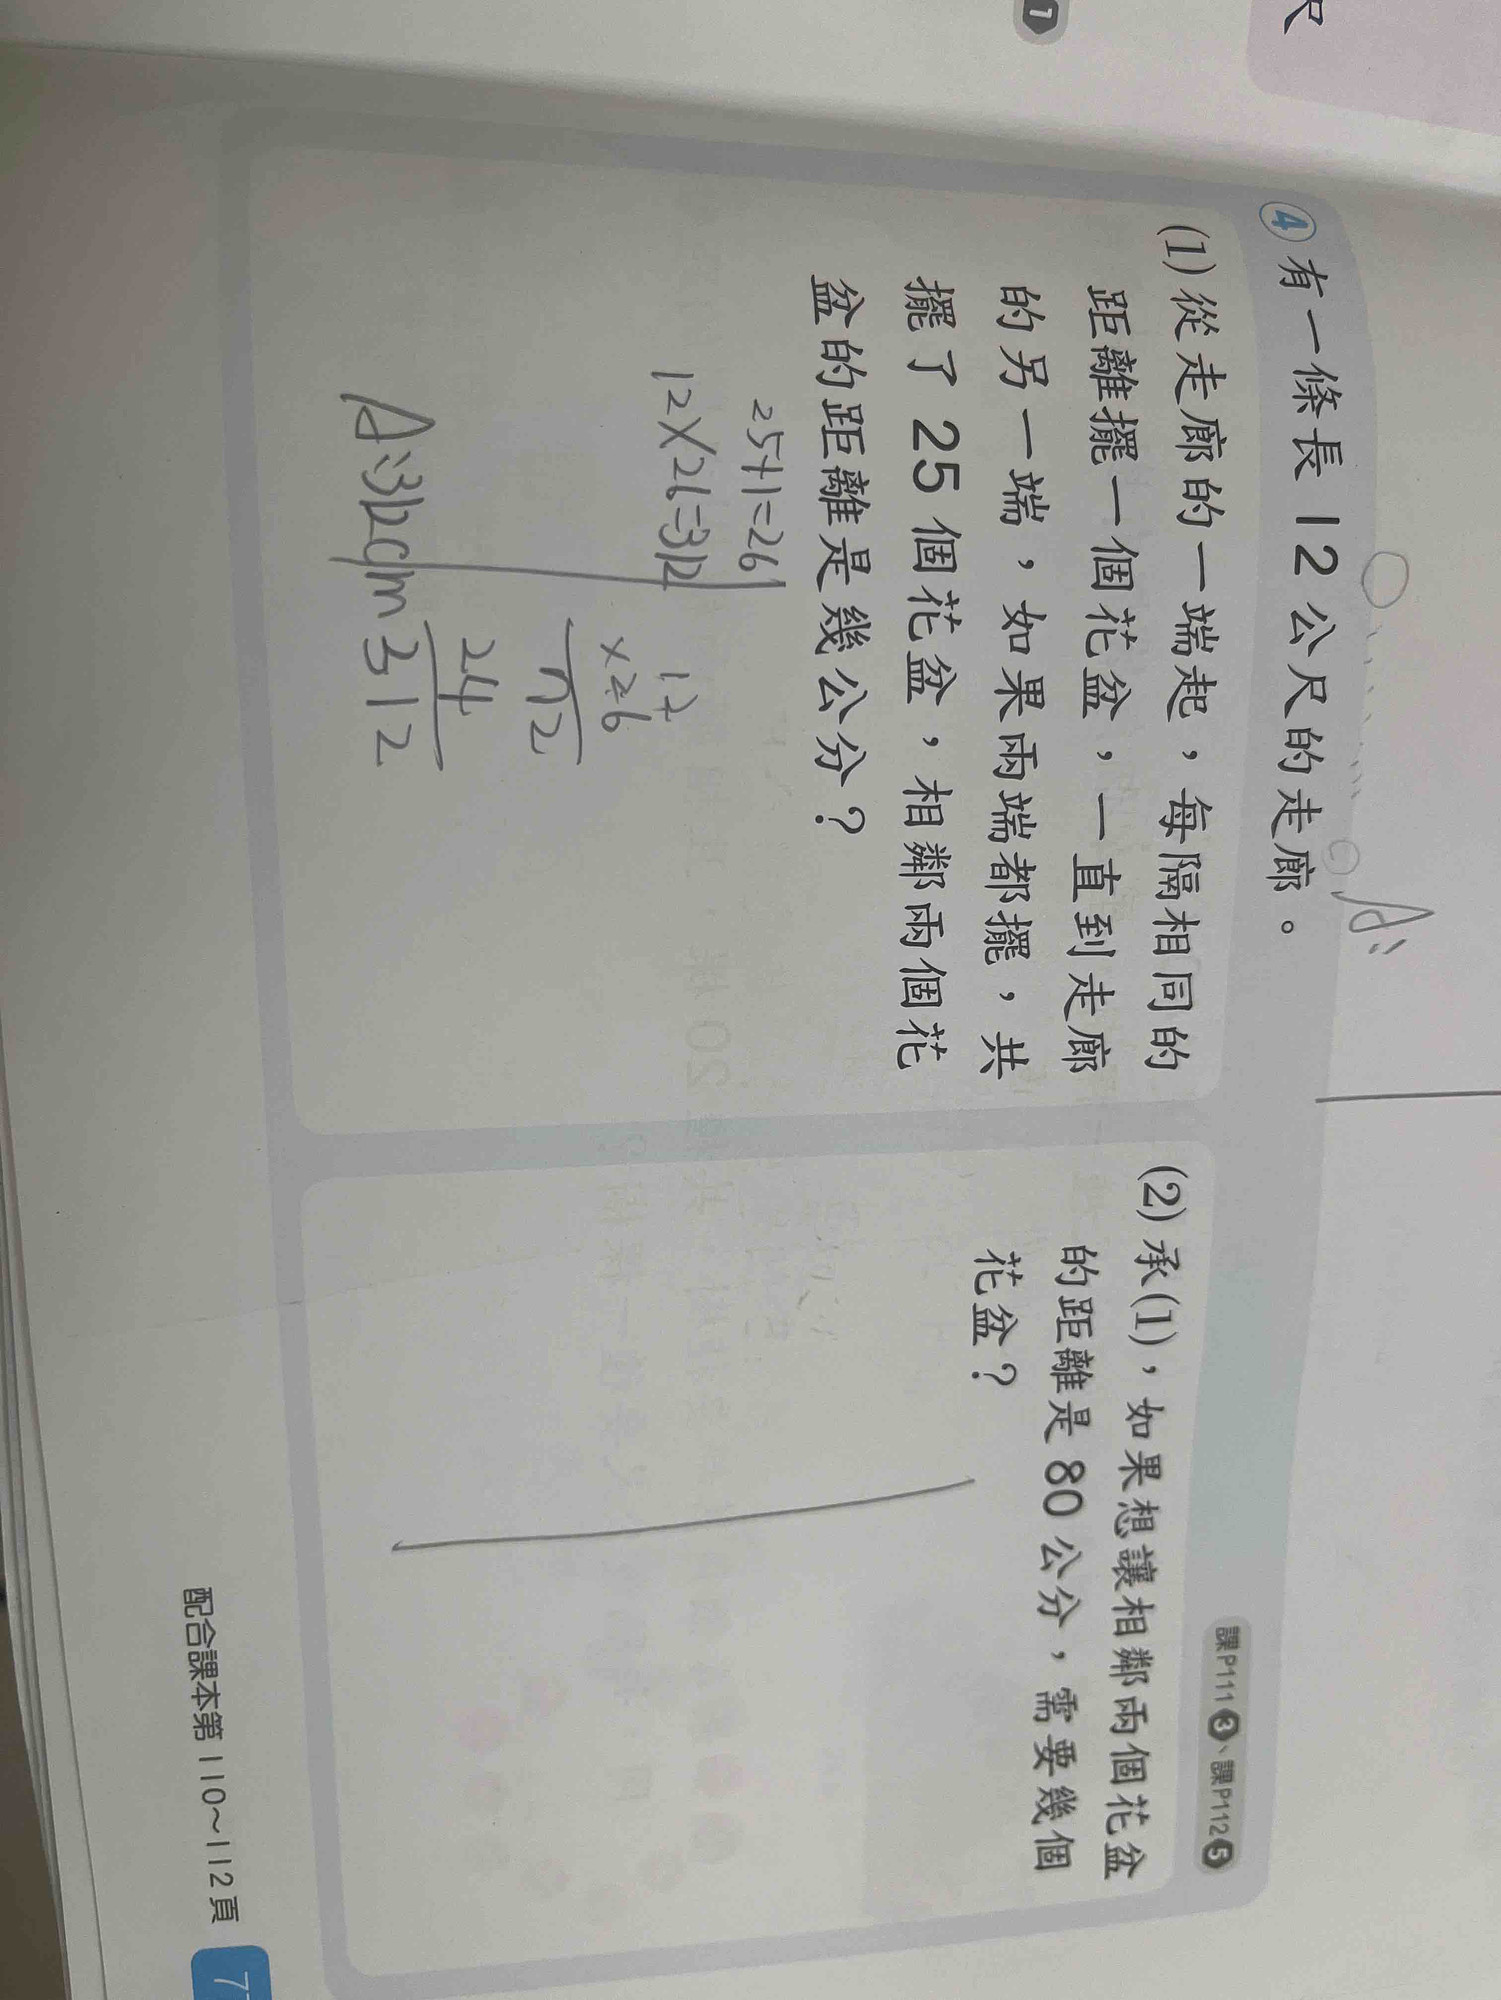 尺
1
4 有一條長 12 公尺的走廊。
A:
課P111 3、課P112 5
(1) 從走廊的一端起，每隔相同的
距離擺一個花盆，一直到走廊
的另一端，如果兩端都擺，共
擺了 25 個花盆，相鄰兩個花
盆的距離是幾公分？
25+1=26
12×26=312
12
×26
72
24
312
A:312cm
(2) 承(1)，如果想讓相鄰兩個花盆
的距離是 80 公分，需要幾個
花盆？
配合課本第 110～112 頁